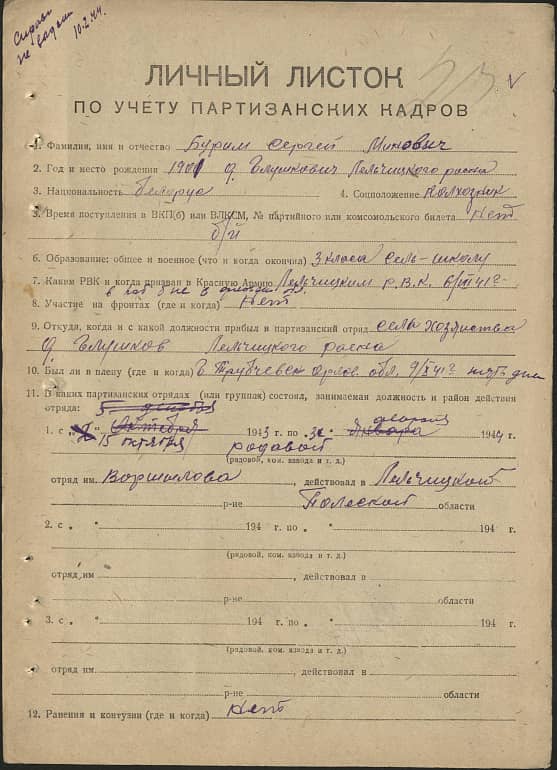 Справк
не выдан
10.2.44.
ЛИЧНЫЙ ЛИСТОК
ПО УЧЕТУ ПАРТИЗАНСКИХ КАДРОВ
1. Фамилия, имя и отчество Бурим Сергей Минович
2. Год и место рождения 1901 д. Глушкович Лельчицкого раена
3. Национальность белорус 4. Соцположение Колхозник
3. Время поступления в ВКП(б) или ВЛКСМ, № партийного или комсомольского билета нет
б/п
6. Образование: общее и военное (что и когда окончил) 3 класа сель-школы
7. Каким РВК и когда призван в Красную Армию Лельчицким Р.В.К. 6/VII 41г
8. Участие на фронтах (где и когда) Нет
9. Откуда, когда и с какой должности прибыл в партизанский отряд сель хозяства
д. Глушков Лельчицкого раена
10. Был ли в плену (где и когда) Г. Трубчевск Орлов. обл. 9/X 41г пять дни
11. В каких партизанских отрядах (или группах) состоял, занимаемая должность и район действия
отряда:
февраля
1. с „ Октября 1943 г. по 3 Января 1944 г.
15 октября
родавой
(рядовой, ком. взвода и т. д.)
отряд им. Ворошилова, действовал в Лельчицкой
р-не Полеской области
2. с „ " 194 г. по „ " 194 г.
(рядовой, ком. взвода и т. д.)
отряд им , действовал в
р-не области
3. с „ " 194 г. по „ " 194 г.
(рядовой, ком. взвода и т. д.)
отряд им. , действовал в
р-не области
12. Ранения и контузии (где и когда) Нет